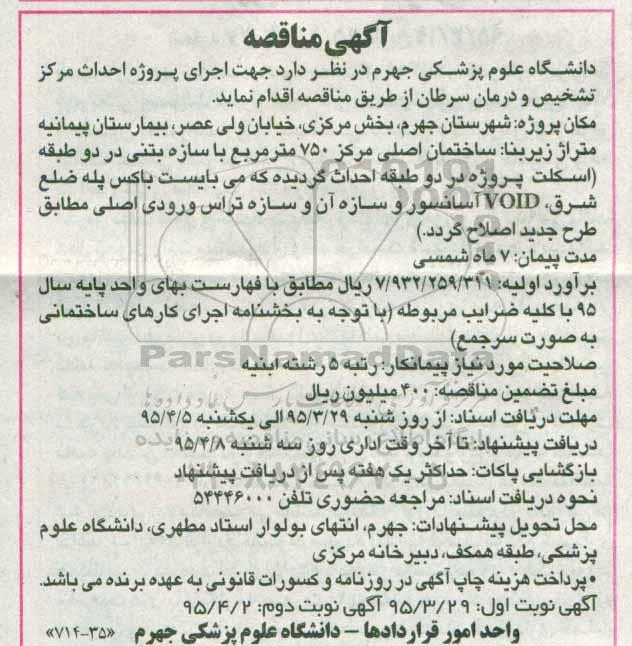 آگهی مناقصه
دانشگاه علوم پزشکی جهرم در نظر دارد جهت اجرای پروژه احداث مرکز
تشخیص و درمان سرطان از طریق مناقصه اقدام نماید.
مکان پروژه: شهرستان جهرم، بخش مرکزی، خیابان ولی عصر، بیمارستان پیمانیه
متراژ زیربنا: ساختمان اصلی مرکز ۷۵۰ مترمربع با سازه بتنی در دو طبقه
(اسکلت پروژه در دو طبقه احداث گردیده که می بایست باکس پله ضلع
شرق، VOID آسانسور و سازه آن و سازه تراس ورودی اصلی مطابق
طرح جدید اصلاح گردد.)
مدت پیمان: ۷ ماه شمسی
برآورد اولیه: ۷/۹۳۲/۲۵۹/۳۱۱ ریال مطابق با فهارست بهای واحد پایه سال
۹۵ با کلیه ضرایب مربوطه (با توجه به بخشنامه اجرای کارهای ساختمانی
به صورت سرجمع)
صلاحیت مورد نیاز پیمانکار: رتبه ۵ رشته ابنیه
مبلغ تضمین مناقصه: ۴۰۰ میلیون ریال
مهلت دریافت اسناد: از روز شنبه ۹۵/۳/۲۹ الی یکشنبه ۹۵/۴/۵
دریافت پیشنهاد: تا آخر وقت اداری روز سه شنبه ۹۵/۴/۸
بازگشایی پاکات: حداکثر یک هفته پس از دریافت پیشنهاد
نحوه دریافت اسناد: مراجعه حضوری تلفن ۵۴۴۴۶۰۰۰
محل تحویل پیشنهادات: جهرم، انتهای بولوار استاد مطهری، دانشگاه علوم
پزشکی، طبقه همکف، دبیرخانه مرکزی
• پرداخت هزینه چاپ آگهی در روزنامه و کسورات قانونی به عهده برنده می باشد.
آگهی نوبت اول: ۹۵/۳/۲۹ آگهی نوبت دوم: ۹۵/۴/۲
واحد امور قراردادها – دانشگاه علوم پزشکی جهرم «۷۱۴-۳۵»
ParsNamadData